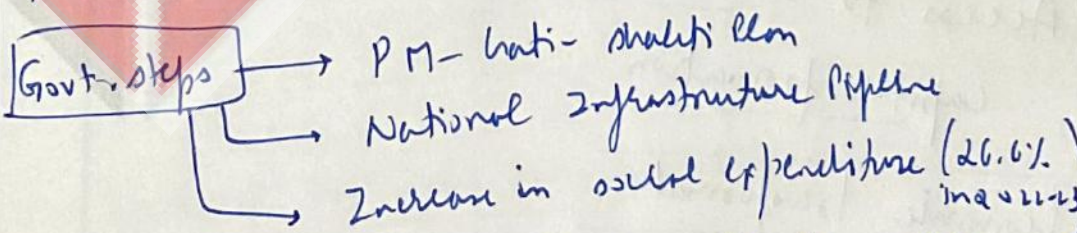 Govt. steps
PM-Gati-shakti Plan
National Infrastructure Pipeline
Increase in social expenditure (26.6%
in 2022-23